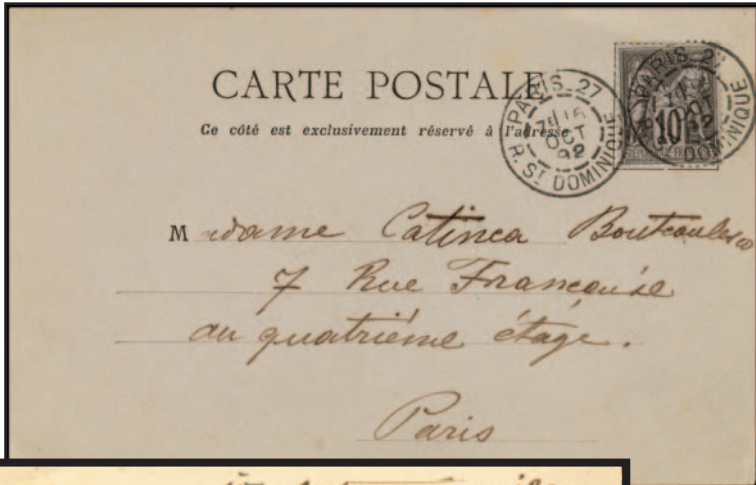 CARTE POSTALE
Ce côté est exclusivement réservé à l'adresse
PARIS_27
7E 15
OCT
92
R. ST DOMINIQUE
PARIS_2
10
92
DOMINIQUE
Madame Catinca
7 Rue Française
au quatrième étage.
Paris